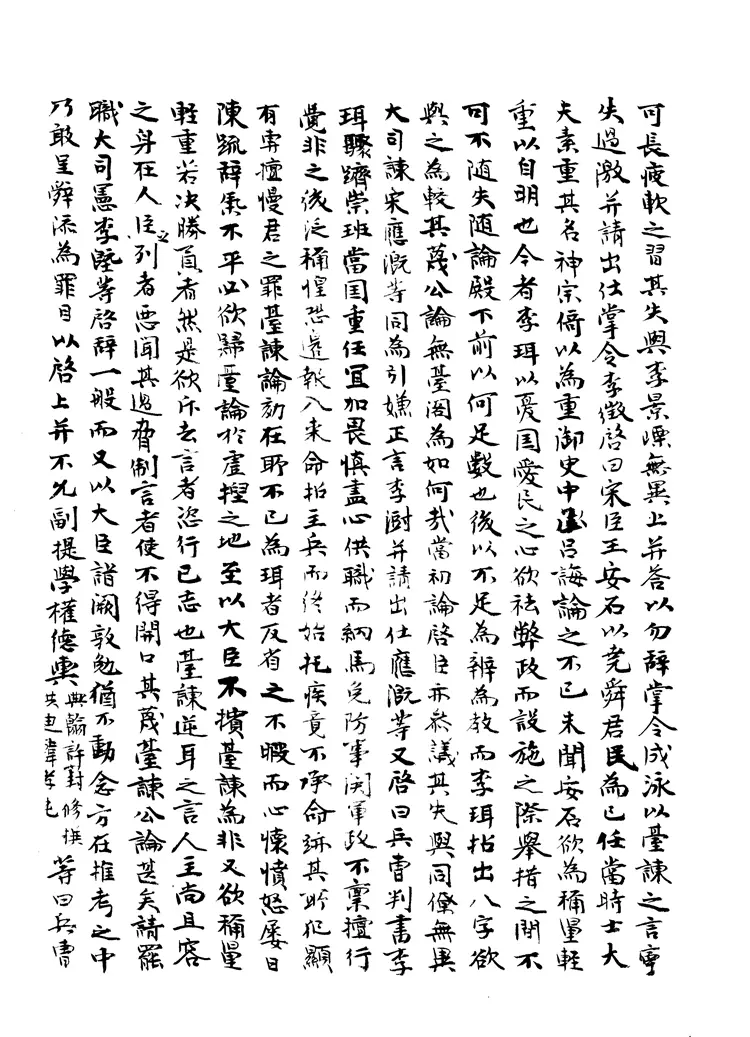 可長疲軟之習其失與李景㻮無異上并答以勿辞掌令成泳以臺諫之言寧
失過激并請出仕掌令李徵啓曰宋臣王安石以堯舜君民為已任當時士大
夫素重其名神宗倚以為重御史中丞呂誨論之不已未聞安石欲為稱量輕
重以自明也今者李珥以憂国愛民之心欲祛弊政而設施之際舉措之間不
可不随失随論殿下前以何足數也後以不足為辨為教而李珥拈出八字欲
與之為較其蔑公論無臺閣為如何哉當初論啓臣亦參議其失與同僚無異
大司諫宋應漑等同為引嫌正言李澍并請出仕應漑等又啓曰兵曹判書李
珥驟躋崇班當国重任宜加畏慎盡心供職而納馬免防軍関軍政不稟擅行
覺非之後泛稱惶恐遑報入来命招主兵而終始托疾竟不承命跡其所犯顯
有專擅慢君之罪臺諫論劾在所不已為珥者反省之不暇而心懷憤怒屡日
陳疏辞氣不平必欲歸臺論於虛捏之地至以大臣不擯臺諫為非又欲稱量
軽重若决勝負者然是欲斥去言者恣行已志也臺諫逆耳之言人主尚且容
之身在人臣之列者惡聞其過脅制言者使不得開口其蔑臺諫公論甚矣請罷
職大司憲李墍等啓辞一般而又以大臣詣闕敦勉猶不動念方在推考之中
乃敢呈辞添為罪目以啓上并不允副提學權德輿典翰許篈修撰等曰兵曹